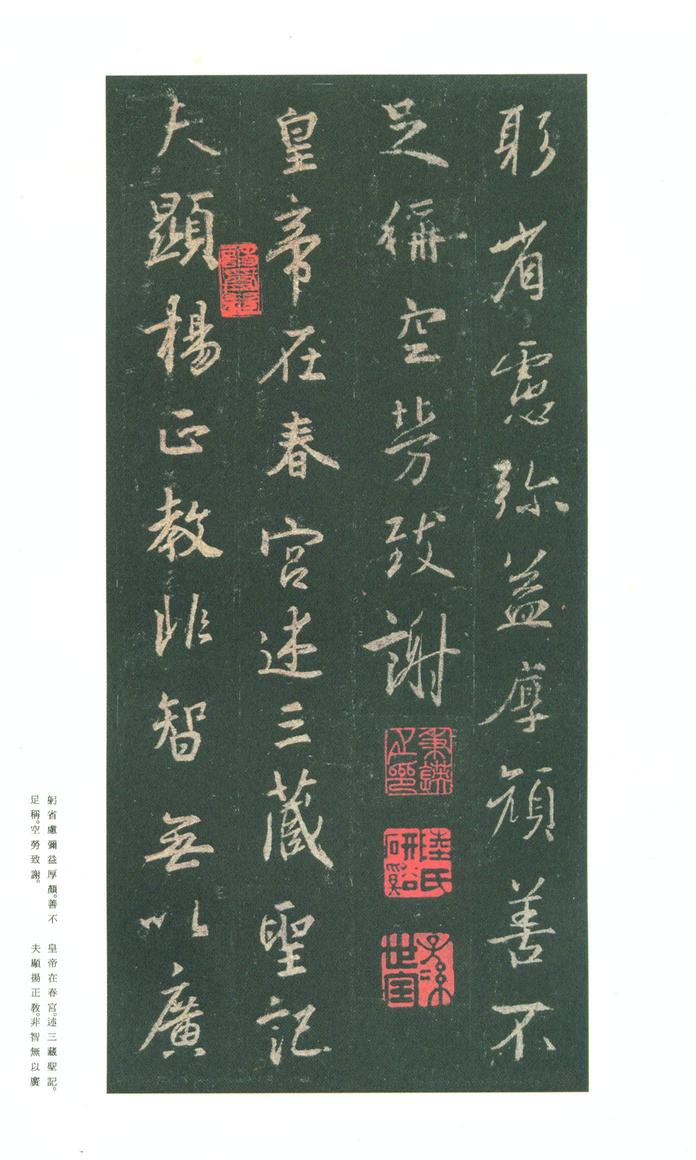 躬省慮弥益厚顔善不
足稱空勞致謝
皇帝在春宮述三藏聖記
夫顯揚正教非智無以廣
陸氏研谿
子孫世寶
躬省慮彌益厚顏。善不
足稱。空勞致謝。
皇帝在春宮。述三藏聖記。
夫顯揚正教。非智無以廣